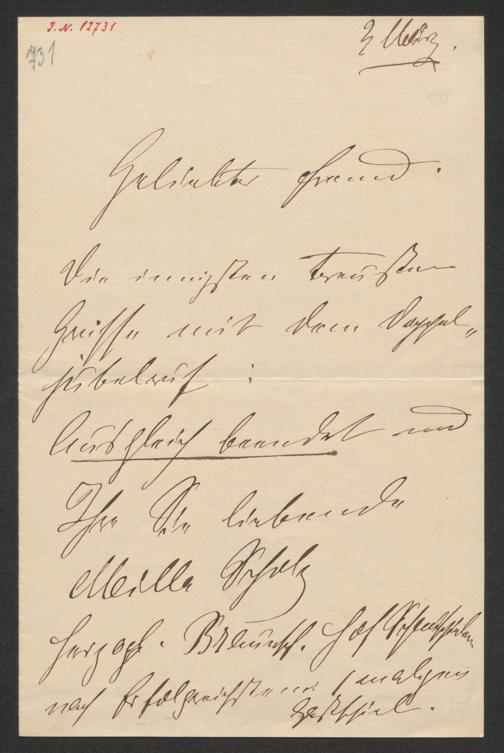 J. N. 12731
731
2 März.
Geliebter Freund.
Die innigsten treusten
Grüsse mit dem Doppel-
jubelruf:
Ausgleich beendet und
Ihre Sie liebende
Mella Scholz
herzogl. Braunsch. Hof Schauspielerin
nach Erfolgreichstem 1 maligen
Gastspiel.